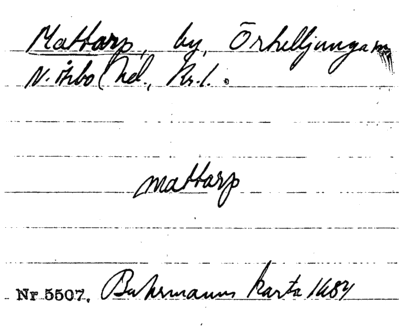 Mattarp, by, Örkelljunga sn
N. Åsbo hd., Kr. l.
mattarp
Nr 5507. Buhrmanns karta 1684